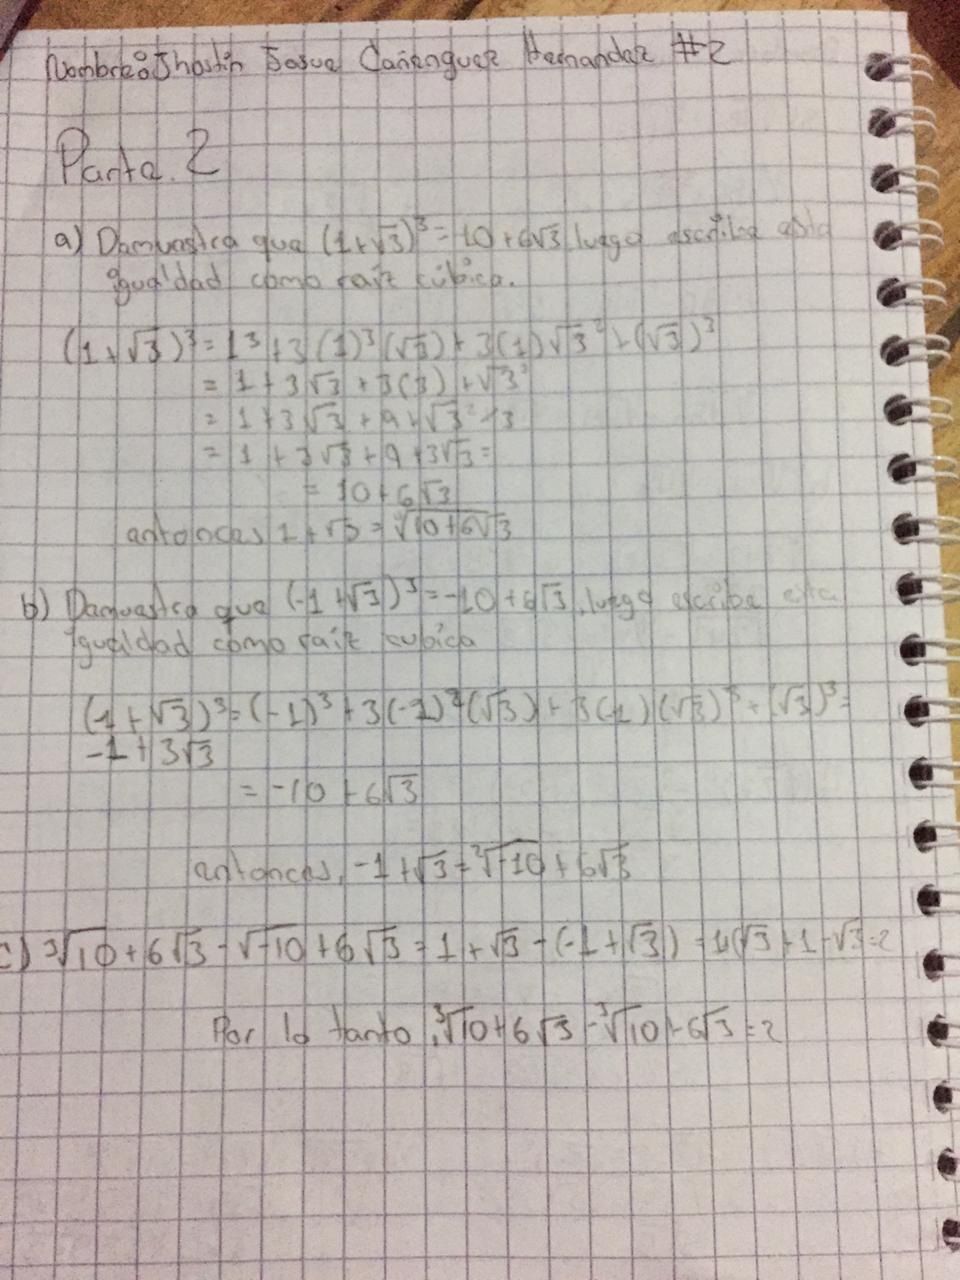 Nombre: Jhostin Josue Cañenguez Hernandez #2
Parte. 2
a) Demuestra que (1+√3)³=10+6√3, luego escriba esta
igualdad como raíz cúbica.
(1+√3)³=1³+3(1)³(√3)+3(1)√3²+(√3)³
= 1+3√3+3(3)+√3³
= 1+3√3+9+√3²·3
= 1+3√3+9+3√3=
= 10+6√3
entonces 1+√3=∛10+6√3
b) Demuestra que (-1+√3)³=-10+6√3, luego escribe esta
igualdad como raíz cubica
(-1+√3)³=(-1)³+3(-1)²(√3)+3(-1)(√3)²+(√3)³=
-1+3√3
= -10+6√3
entonces, -1+√3=∛-10+6√3
c) ∛10+6√3-√-10+6√3=1+√3-(-1+√3)=1+√3+1-√3=2
Por lo tanto, ∛10+6√3-∛10+6√3=2